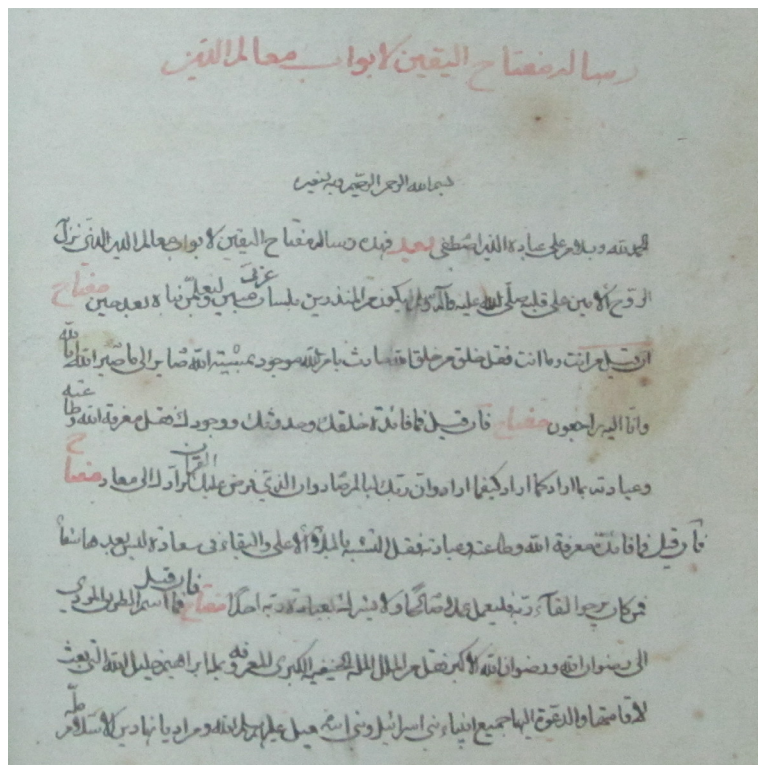 رسالة مفتاح اليقين لابواب معالم الدين
بسم الله الرحمن الرحيم وبه نستعين
الحمد لله وسلام على عباده الذين اصطفى بعد فهذه رسالة مفتاح اليقين لابواب معالم الدين الذي نزل
الروح الامين على قلبه صلى الله عليه وآله وسلم ليكون من المنذرين بلسان عربي مبين ولتعلمن نباه بعد حين مفتاح
ان قيل من انت وما انت فقل خلق من خلق الله حادث بامر الله موجود بمشيته الله صاير الى ما صير الله انا لله
وانا اليه راجعون مفتاح فان قيل فما فائدة خلقك وحدوثك ووجودك فقل معرفة الله وطاعته
وعبادته بما اراد كما اراد كيفما اراد وان ربك لبالمرصاد وان الذي فرض عليك القرآن لرادك الى معاد مفتاح
فان قيل فما فائدة معرفة الله وطاعته وعبادته فقل التشبه بالملاء الاعلى والبقاء في سعادة ليس بعدها شقا
فمن كان يرجوا لقآء ربه فليعمل عملا صالحا ولا يشرك بعبادة ربه احدا مفتاح فان قيل فما اسم الطريق المودي
الى رضوان الله ورضوان الله الاكبر فقل من الملل الملة الحنيفية الكبرى المعروفة بملة ابراهيم خليل الله التي بعث
لاقامتها والدعوة اليها جميع انبياء بني اسرائيل وبني اسمعيل عليهم سلام الله ومن الاديان دين الاسلام